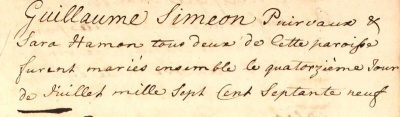 Guillaume Simeon Poirvaux &
Sara Hamon tous deux de Cette paroisse
furent mariés ensemble le quatorzième Jour
de Juillet mille Sept Cent Septante neuf